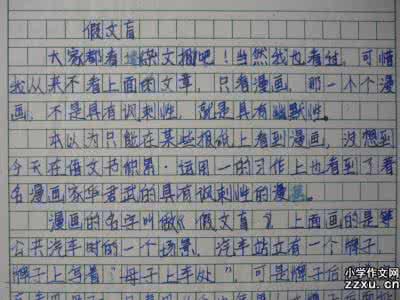 假文盲
大家都看过语文报吧！当然我也看过，可惜
我从来不看上面的文章，只看漫画，那一个个漫
画，不是具有讽刺性，就是具有幽默性。
本以为只能在某些报纸上看到漫画，没想到
今天在语文书积累·运用一的习作上也看到了著
名漫画家华君武的具有讽刺性的漫画。
漫画的名字叫做《假文盲》，上面画的是等
公共汽车时的一个场景，汽车站立有一个牌子，
牌子上写着“母子上车处”，可是牌子后
小学作文网
zzxu.cn